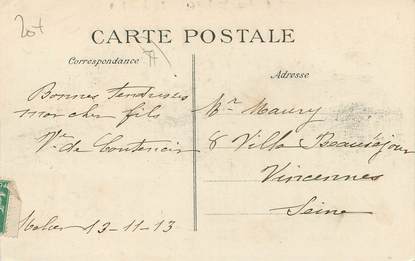 CARTE POSTALE
Correspondance
Adresse
Bonnes tendresses
mon cher fils
Vve de
13-11-13
Mr Maury
8 Villa Beauséjour
Vincennes
Seine